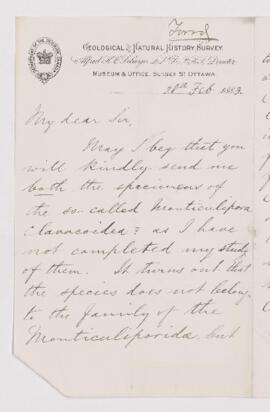 Foord
GEOLOGICAL & NATURAL HISTORY SURVEY
Alfred R. C. Selwyn, L.L.D., F.R.S., Director
MUSEUM & OFFICE, SUSSEX ST OTTAWA
28th Feb 1883.
My dear Sir,
May I beg that you
will kindly send me
both the specimens of
the so-called Monticulipora
clavacoidea? as I have
not completed my study
of them. It turns out that
the species does not belong
to the family of the
Monticuliporidæ, but